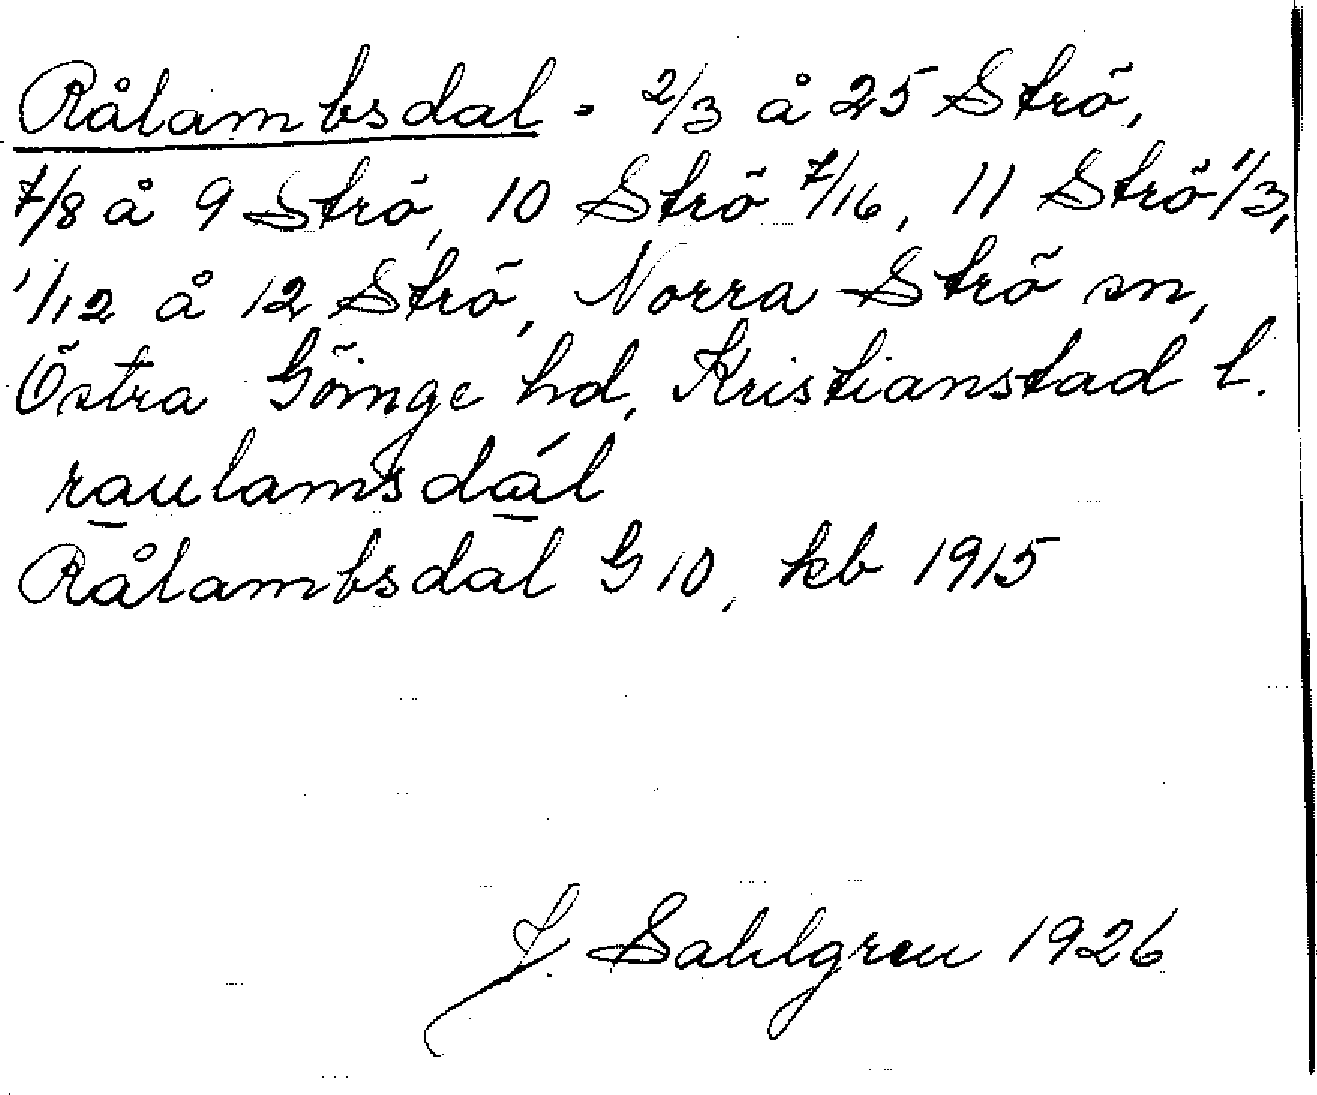 Rålambsdal - 2/3 å 25 Strö,
7/8 å 9 Strö, 10 Strö 7/16, 11 Strö 1/3,
1/12 å 12 Strö, Norra Strö sn,
Östra Göinge hd, Kristianstad l.
raulamsdál
Rålambsdal G 10, kb 1915
J. Sahlgren 1926